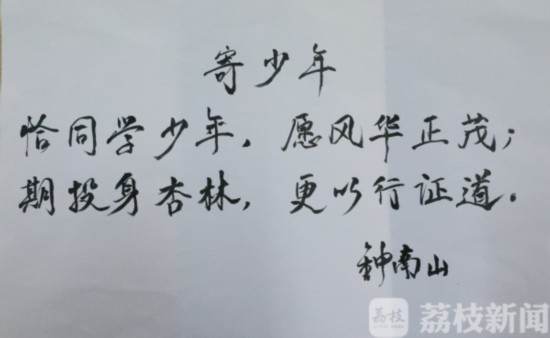 寄少年
恰同学少年，愿风华正茂；
期投身杏林，更以行证道。
钟南山
荔枝 荔枝新闻